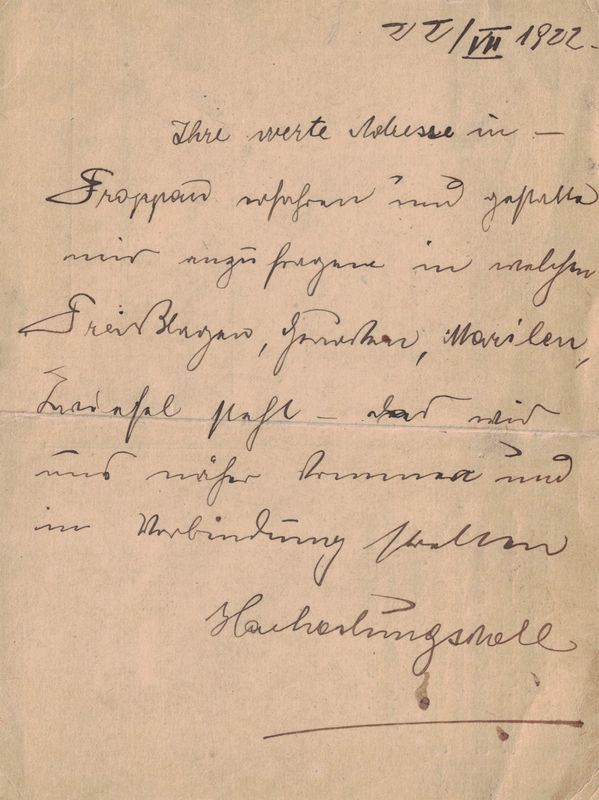 22/VII 1922.
Ihre werte Adresse in –
Troppau erfahren und gestatte
mir anzufragen in welchen
Preißlagen, Gurken, Marilen,
Zwiefel steht – das wir
uns näher kommen und
in Verbindung stellen
Hochachtungsvoll